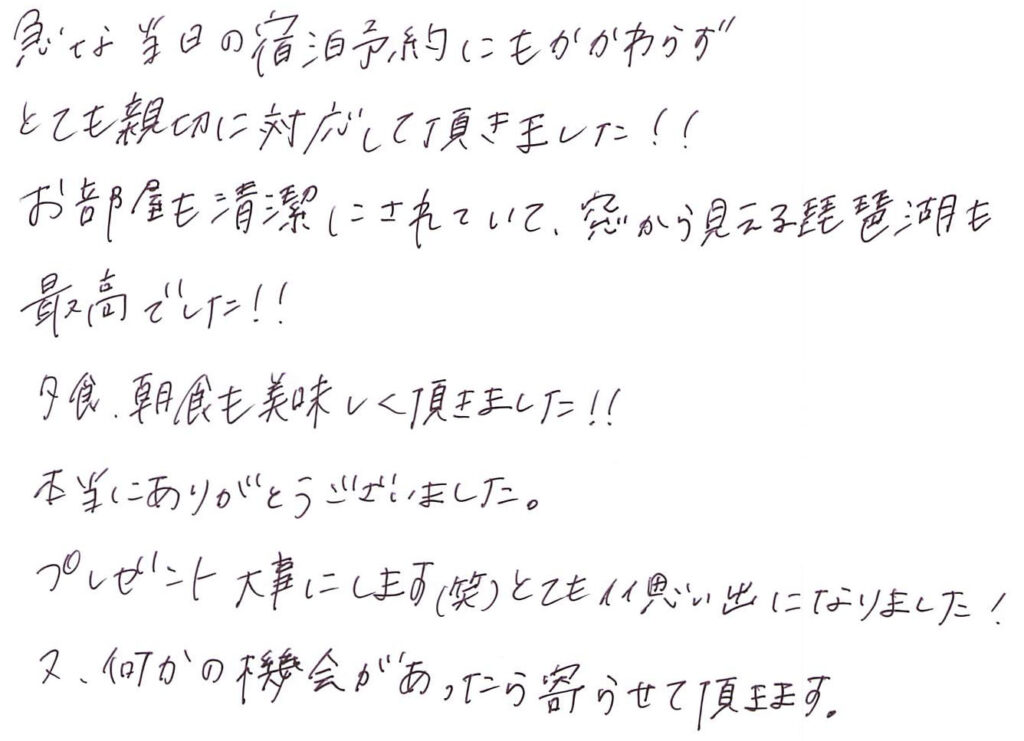 急な当日の宿泊予約にもかかわらず
とても親切に対応して頂きました!!
お部屋も清潔にされていて、窓から見える琵琶湖も
最高でした!!
夕食、朝食も美味しく頂きました!!
本当にありがとうございました。
プレゼント大事にします(笑)とてもイイ思い出になりました!
又、何かの機会があったら寄らせて頂きます。